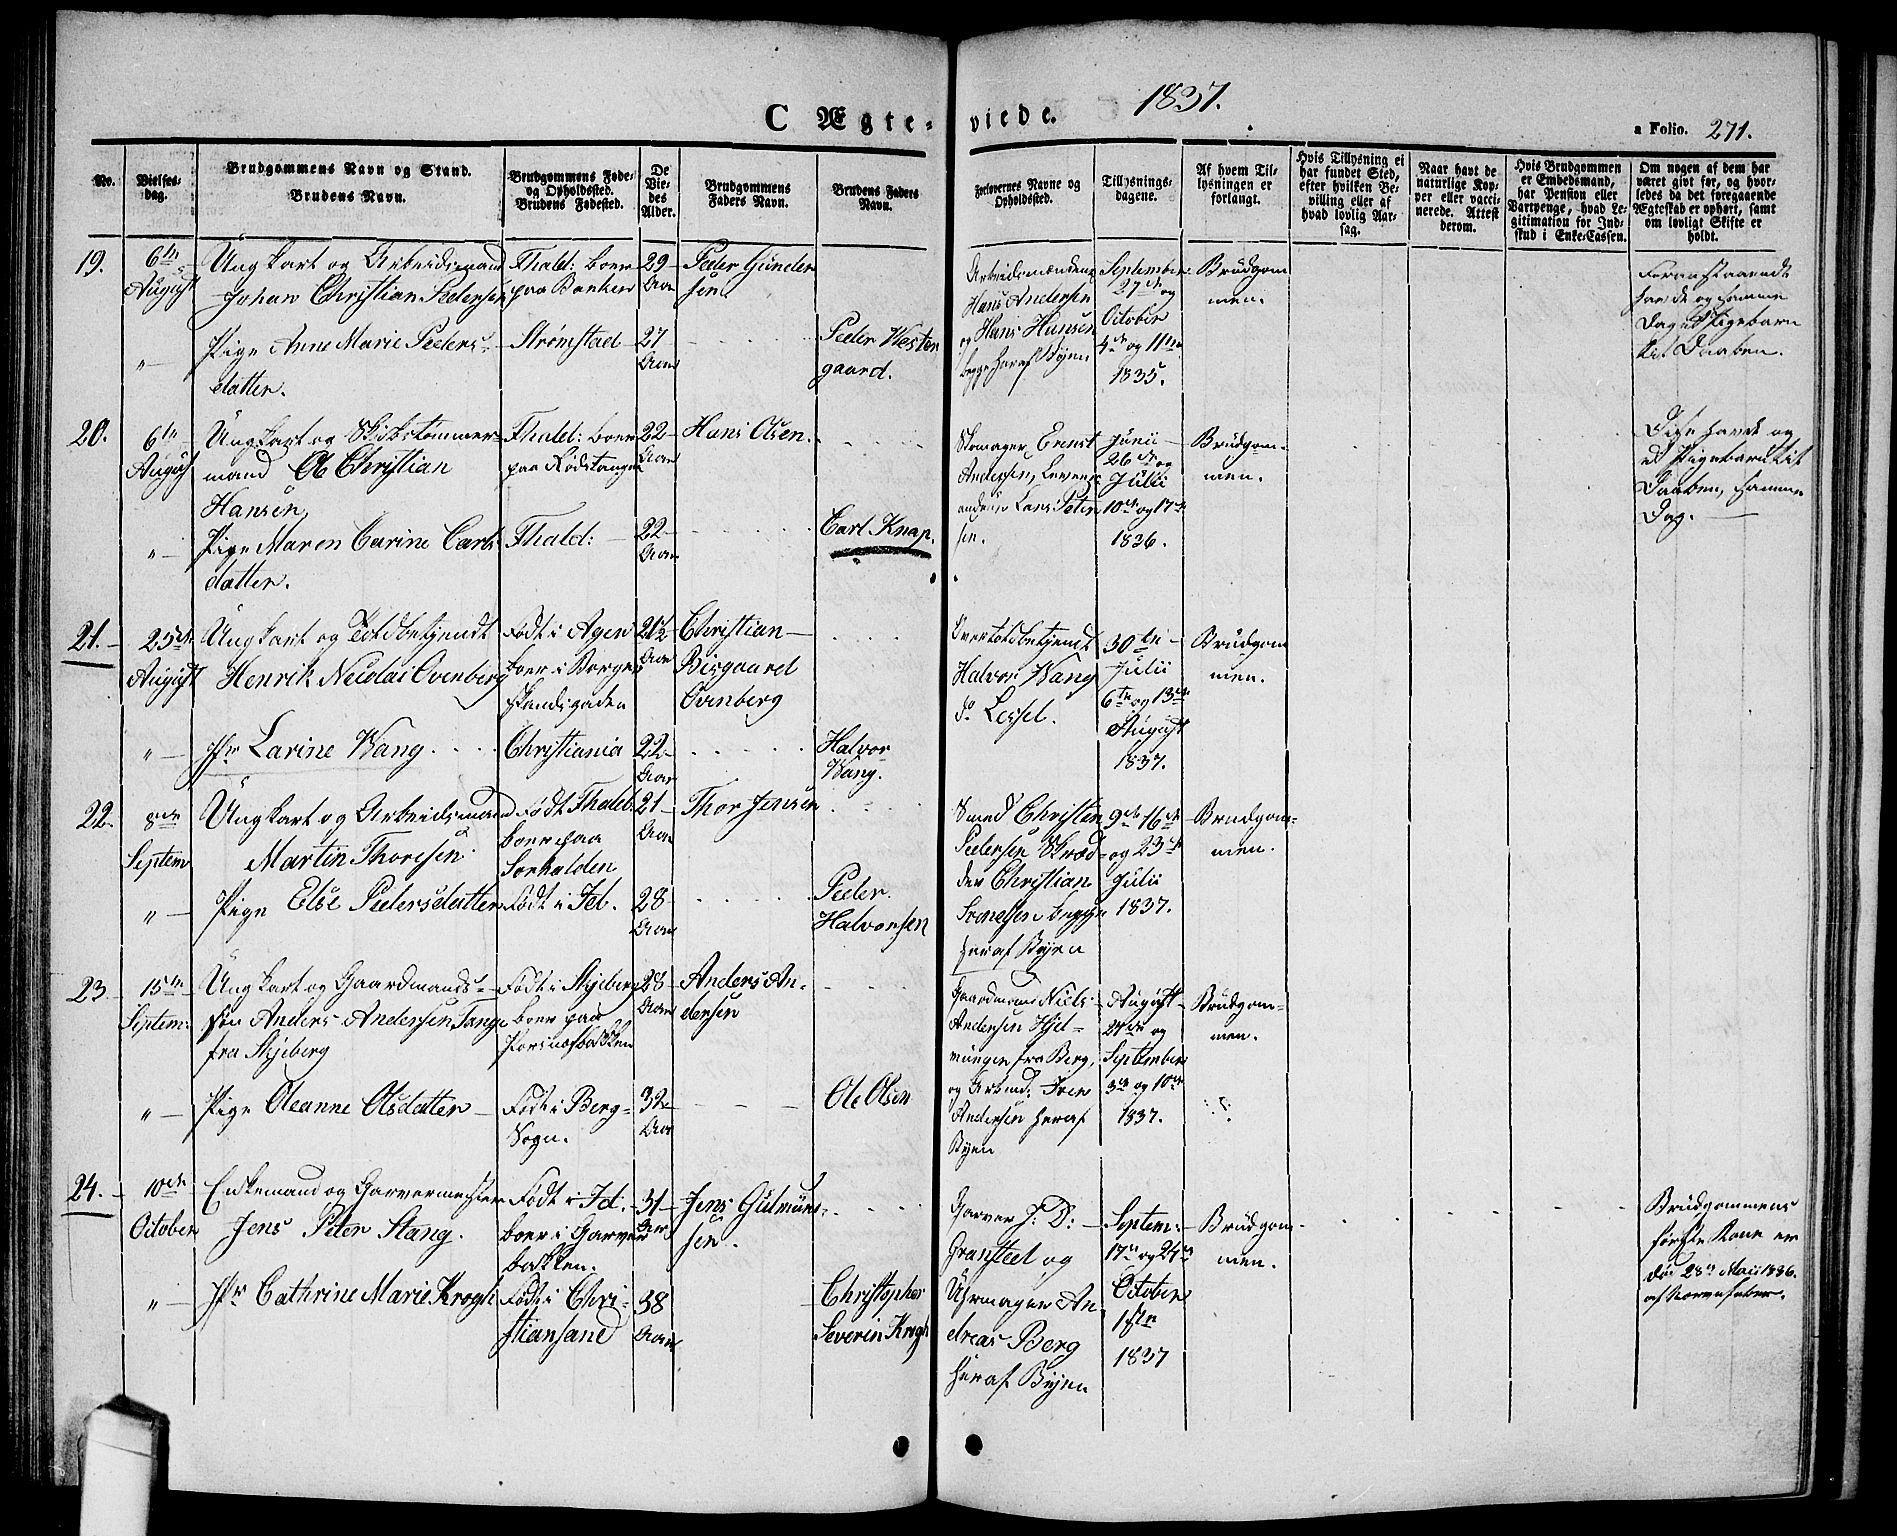 1837.
C Ægte-viede.
a Folio. 271.
No.
Vielses-
dag.
Brudgommens Navn og Stand.
Brudens Navn.
Brudgommens Føde-
og Opholdssted.
Brudens Fødested.
De
Vie-
des
Alder.
Brudgommens
Faders Navn.
Brudens Faders
Navn.
Forlovernes Navne og
Opholdssted.
Tillysnings-
dagene.
Af hvem Til-
lysningen er
forlangt.
Hvis Tillysning ei
har fundet Sted,
efter hvilken Be-
villing eller af
hvad lovlig Aar-
sag.
Naar havt de
naturlige Kop-
per eller vacci-
nerede. Attest
derom.
Hvis Brudgommen
er Embedsmand,
har Pension eller
Vartpenge, hvad Le-
gitimation for Ind-
skud i Enke-Cassen.
Om nogen af dem har
været gift før, og hvor-
ledes da det foregaaende
Ægteskab er ophørt, samt
om lovligt Skifte er
holdt.
19.
6te
August
Ungkarl og Arbeidsmand
Johan Christian Pedersen
Fhald: boer
paa Banken
29
Aar
Peder Gunder
sen
Arbeidsmændene
Hans Andersen
og Hans Hansen
begge heraf Byen
September
27de og
October
4de og 11te
1835.
Brudgom
men.
Foranstaaende
havde og samme
Dag et Pigebarn
til Daaben.
" -
Pige Anne Marie Peders-
datter.
Strømstad
27
Aar
Peder Wester
gaard.
20.
6te
August
Ungkarl og Skibstømmer-
mand Ole Christian
Hansen
Fhald: boer
paa Rødstangen
22
Aar
Hans Olsen.
Skomager Ernst
Andersen,
Lars Peter
sen.
Junii
26de og
Julii
10de og 17de
1836.
Brudgom-
men.
Disse havde og
et Pigebarn til
Daaben, samme
Dag.
" -
Pige Maren Carine Carls
datter.
Fhald:
22
Aar
Carl Knap.
21.
25de
August
Ungkarl og Toldbetjendt
Henrik Nicolai Ovenberg
født i Agen
boer i Borger
skandsgaden
21½
Aar
Christian
Bisgaard
Ovenberg
Overtoldbetjendt
Halvor Wang
do Lessel.
30te
Julii
6te og 13de
August
1837.
Brudgom
men.
" -
Jfr Larine Wang
Christiania
22
Aar
Halvor
Wang.
22.
8de
Septem
Ungkarl og Arbeidsmand
Martin Thoresen.
født Fhald:
boer paa
Sørhalden
21
Aar
Thor Jensen
Smed Christen
Pedersen Skræd-
der Christian
begge
heraf Byen
9de 16de
og 23de
Julii
1837.
Brudgom-
men.
" -
Pige Else Pedersdatter
Født i Id.
28
Aar
Peder
Halvorsen
23
15te
Septem:
Ungkarl og Gaardmands-
søn Anders Andersen Tange
fra Skjeberg
Født i Skjeberg
boer paa
Porsnæsbakken
28
Aar
Anders An-
dersen
Gaardmand Niels
Andersen Hjel-
mungen fra Berg,
og Arbmd: Iver
Andersen heraf
Byen
August
27de og
September
3de og 10de
1837.
Brudgom-
men.
" -
Pige Oleanne Olsdatter
Født i Berg-
Sogn.
32
Aar
Ole Olsen
24.
10de
October
Enkemand og Garvermester
Jens Peter Stang.
Født i Id.
boer i Garver
bakken.
31
Aar
Jens Gulmund
sen.
Garver J: D:
Gransteel og
Uhrmager An
dreas Berg
heraf Byen
Septem:
17de og 24de
October
1ste
1837
Brudgom
men.
Brudgommens
første Kone er
død 28de Maii 1836.
af Nervefeber.
" -
Jfr Cathrine Marie Krogh
Født i Chri-
stiansand
38
Aar
Christopher
Severin Krogh